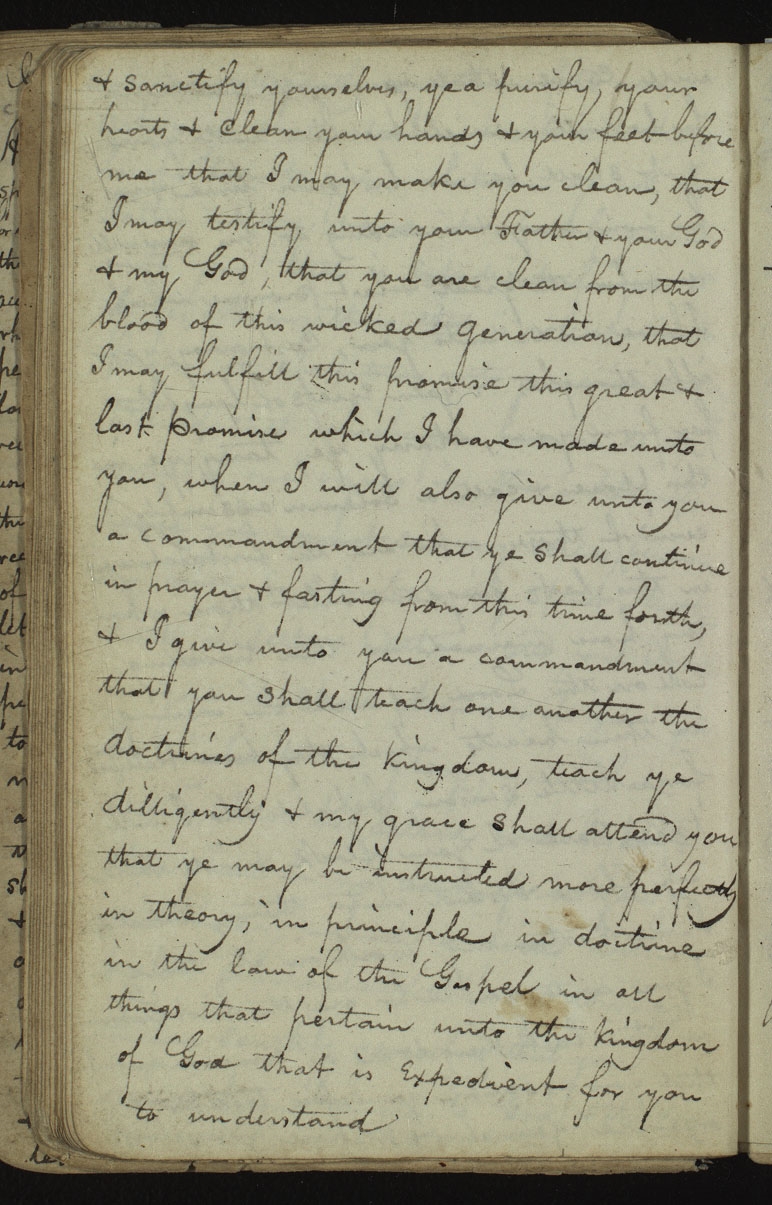 & sanctify yourselves, yea purify, your
hearts & clean your hands & your feet before
me that I may make you clean, that
I may testify unto your Father & your God
& my God, that you are clean from the
blood of this wicked generation, that
I may fulfill this promise this great &
last promise which I have made unto
you, when I will also give unto you
a commandment that ye shall continue
in prayer & fasting from this time forth,
& I give unto you a commandment
that you shall teach one another the
doctrines of the kingdom, teach ye
dilligently & my grace shall attend you
that ye may be instructed more perfectly
in theory, in principle in doctrine
in the law of the Gospel in all
things that pertain unto the kingdom
of God that is Expedient for you
to understand